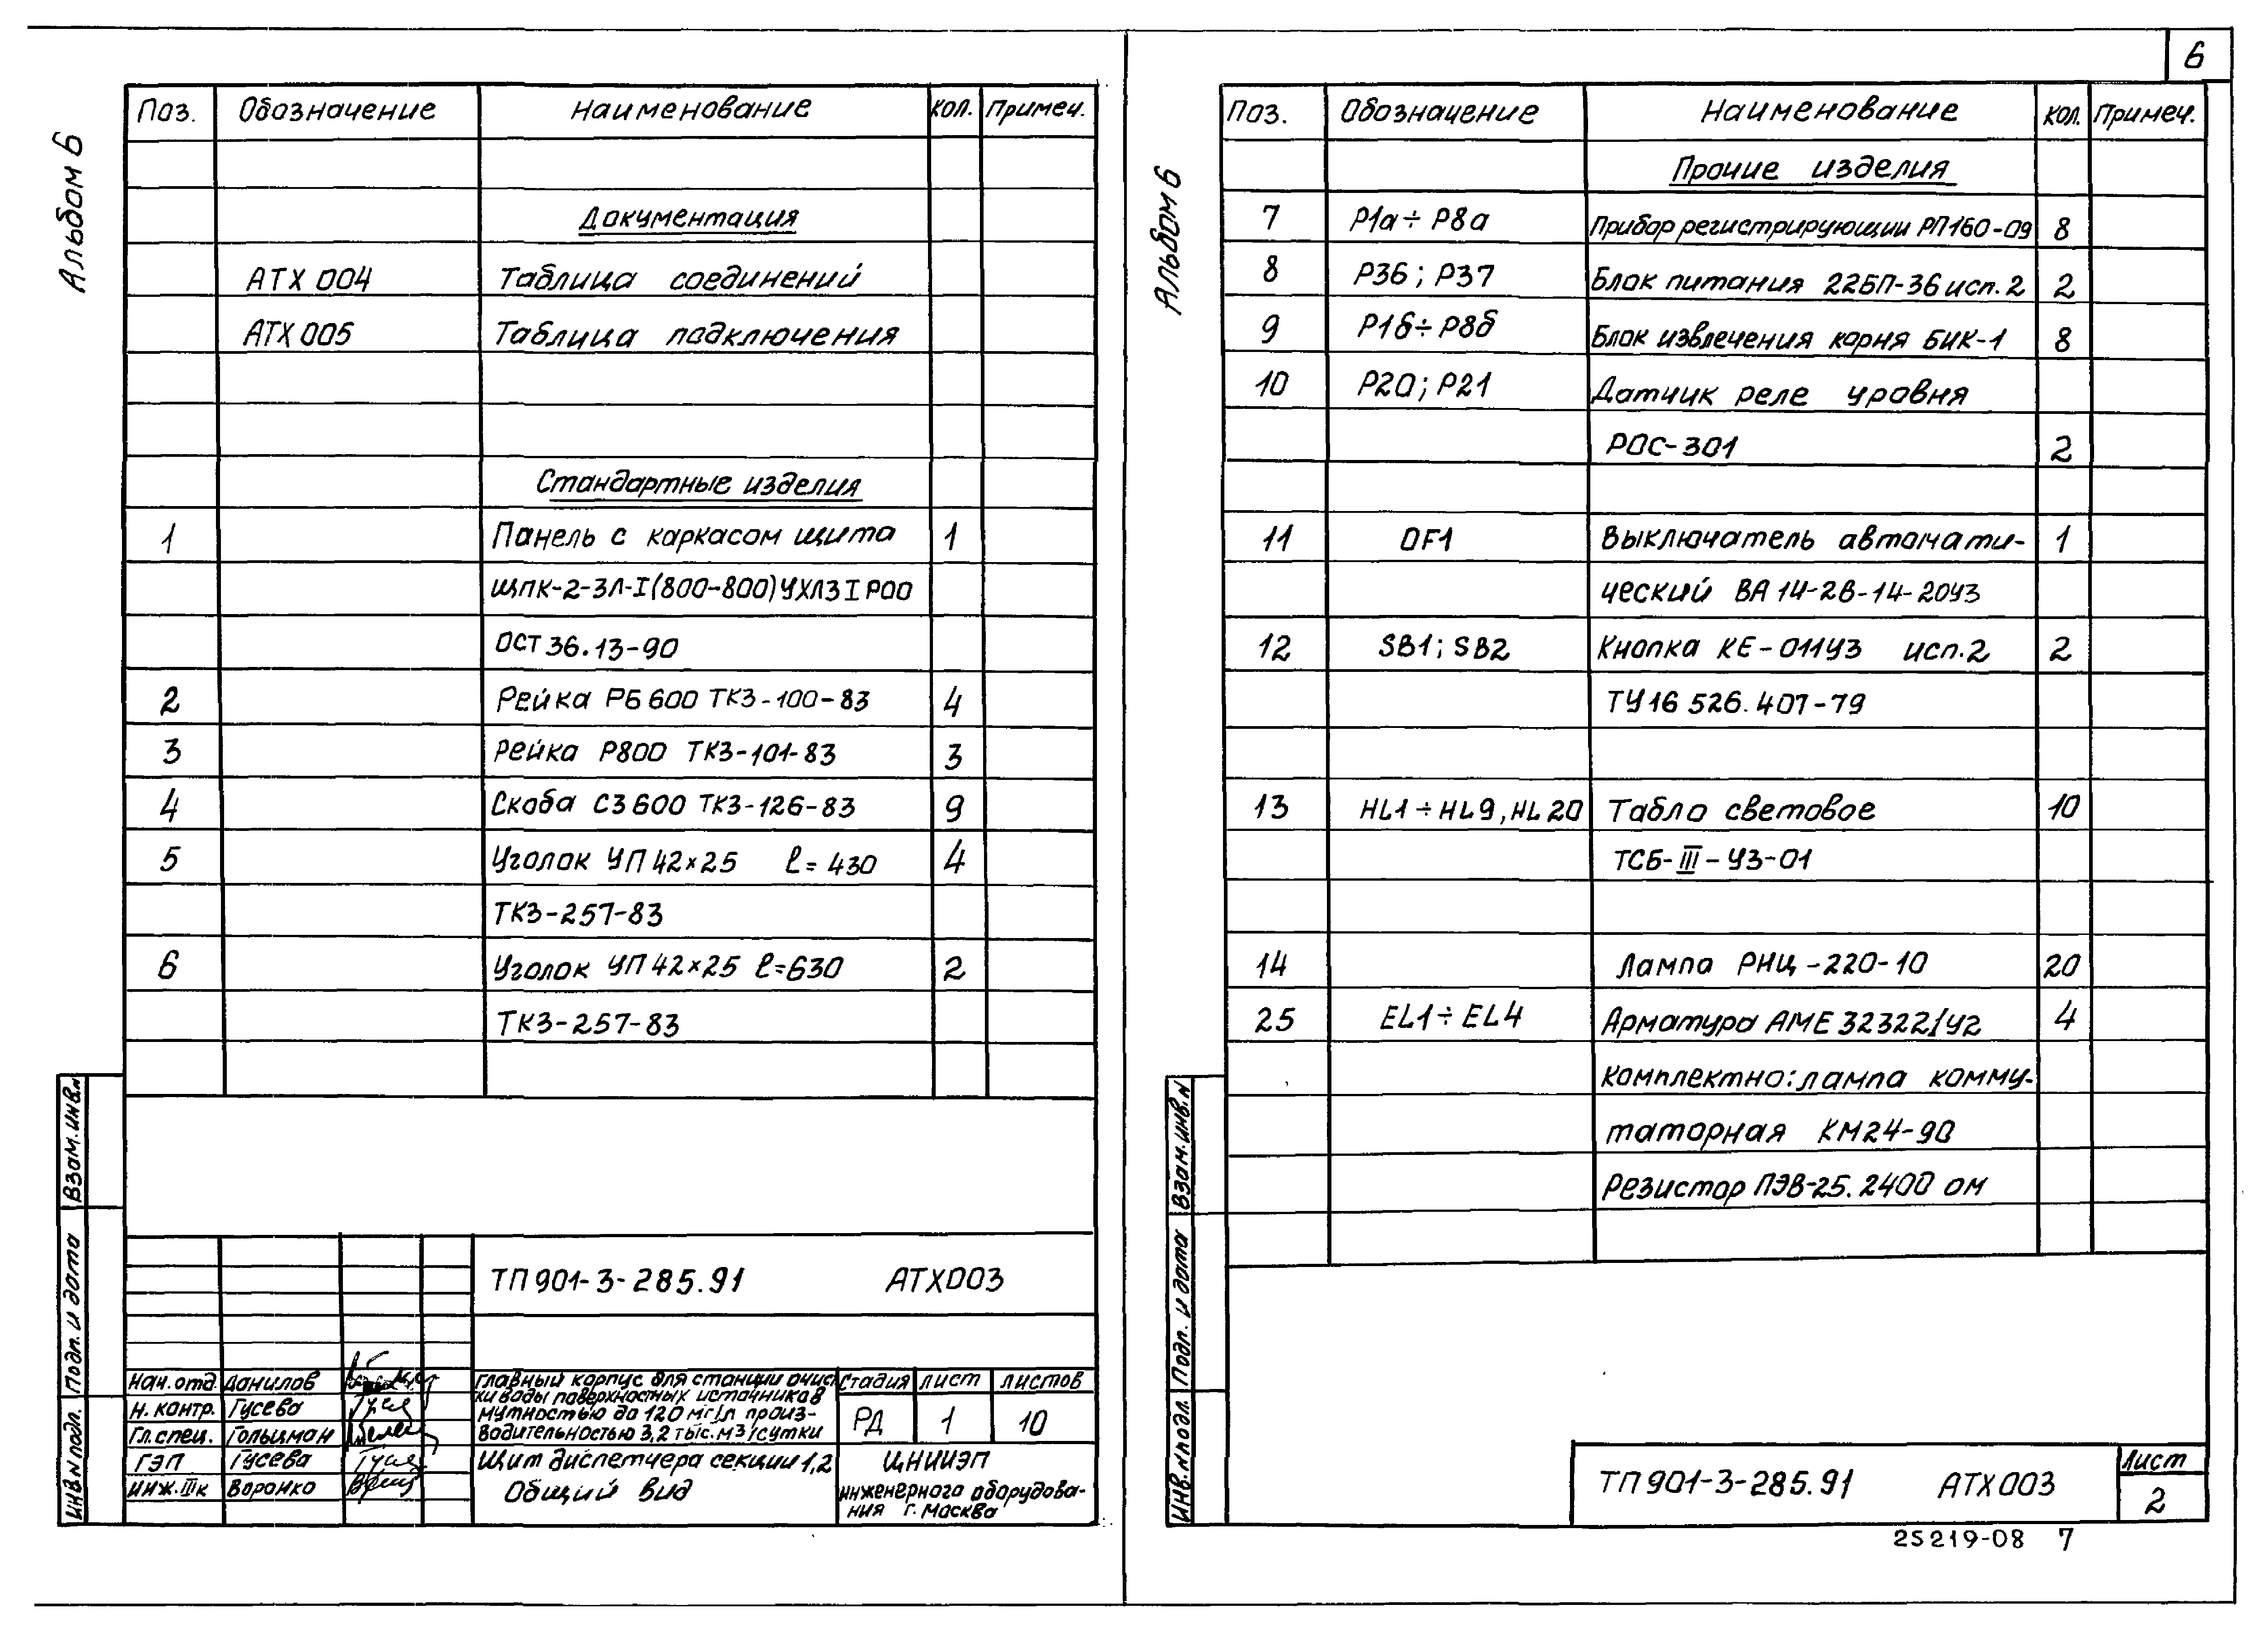 6
Альбом 6
Поз. Обозначение Наименование Кол. Примеч.
Документация
АТХ 004 Таблица соединений
АТХ 005 Таблица подключения
Стандартные изделия
1 Панель с каркасом щита 1
ЩПК-2-ЗЛ-I(800-800)УХЛЗ IP00
ОСТ 36.13-90
2 Рейка РБ 600 ТК3-100-83 4
3 Рейка Р800 ТК3-101-83 3
4 Скоба С3 600 ТК3-126-83 9
5 Уголок УП 42×25 ℓ=430 4
ТК3-257-83
6 Уголок УП 42×25 ℓ=630 2
ТК3-257-83
Взам.инв.N
Подп. и дата
Инв.N подл.
ТП 901-3-285.91 АТХ003
Нач.отд. Данилов
Н. контр. Гусева
Гл.спец. Гольцман
ГЭП Гусева
Инж.IIIк Воронко
Главный корпус для станции очист
ки воды поверхностных источников
мутностью до 120 мг/л произ-
водительностью 3,2 тыс.м3/сутки
Щит диспетчера секции 1,2
Общий вид
Стадия Лист Листов
РД 1 10
ЦНИИЭП
инженерного оборудова-
ния г. Москва
Альбом 6
Поз. Обозначение Наименование Кол. Примеч.
Прочие изделия
7 Р1а÷Р8а Прибор регистрирующии РП160-09 8
8 Р36; Р37 Блок питания 22БП-36 исп.2 2
9 Р1б÷Р8б Блок извлечения корня БИК-1 8
10 Р20; Р21 Датчик реле уровня
РОС-301 2
11 QF1 Выключатель автомати- 1
ческий ВА 14-2В-14-20У3
12 SB1; SB2 Кнопка КЕ-011У3 исп.2 2
ТУ16 526.407-79
13 HL1÷HL9, HL20 Табло световое 10
ТСБ-III-У3-01
14 Лампа РНЦ-220-10 20
25 EL1÷EL4 Арматура АМЕ 32322/У2 4
комплектно: лампа комму-
таторная КМ24-90
Резистор ПЭВ-25. 2400 ом
Взам.инв.N
Подп. и дата
Инв.N подл.
ТП 901-3-285.91 АТХ003
Лист
2
25219-08 7